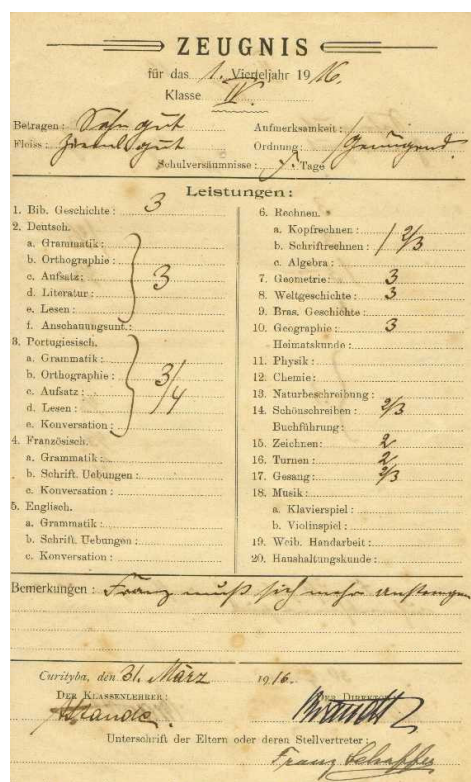 ZEUGNIS
für das 1. Vierteljahr 1916.
Klasse IV.
Betragen: Sehr gut Aufmerksamkeit:
Fleiss: gut Ordnung: Genügend.
Schulversäumnisse: Tage
Leistungen:
1. Bib. Geschichte: 3
2. Deutsch.
a. Grammatik:
b. Orthographie:
c. Aufsatz: 3
d. Literatur:
e. Lesen:
f. Anschauungsunt.:
3. Portugiesisch.
a. Grammatik:
b. Orthographie: 3/4
c. Aufsatz:
d. Lesen:
e. Konversation:
4. Französisch.
a. Grammatik:
b. Schrift. Uebungen:
c. Konversation:
5. Englisch.
a. Grammatik:
b. Schrift. Uebungen:
c. Konversation:
6. Rechnen.
a. Kopfrechnen:
b. Schriftrechnen: 2/3
c. Algebra:
7. Geometrie: 3
8. Weltgeschichte: 3
9. Bras. Geschichte:
10. Geographie: 3
Heimatskunde:
11. Physik:
12. Chemie:
13. Naturbeschreibung:
14. Schönschreiben: 2/3
Buchführung:
15. Zeichnen: 2
16. Turnen: 2
17. Gesang: 2/3
18. Musik:
a. Klavierspiel:
b. Violinspiel:
19. Weib. Handarbeit:
20. Haushaltungskunde:
Bemerkungen: Franz muß sich mehr anstrengen
Curityba, den 31. März 1916.
DER KLASSENLEHRER: DER DIREKTOR
Brandt
Unterschrift der Eltern oder deren Stellvertreter:
Franz Schaffer